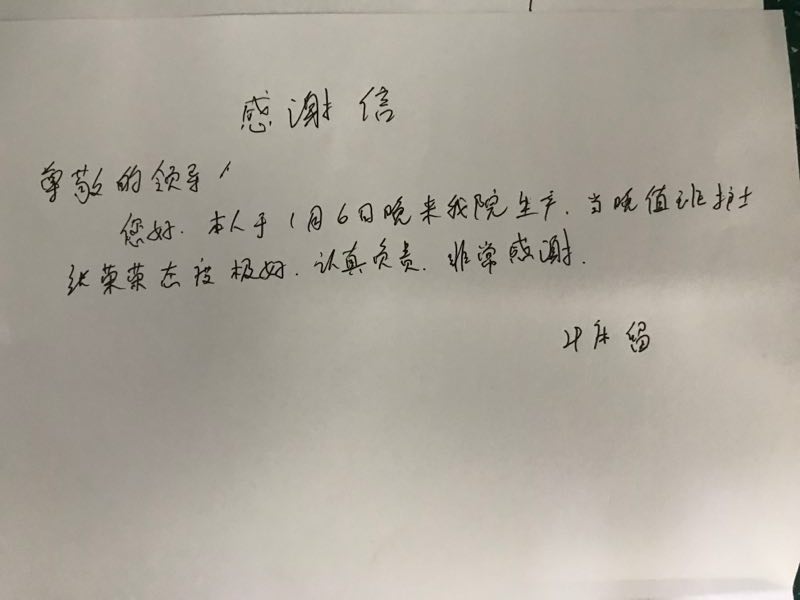 感谢信
尊敬的领导，
您好.本人于1月6日晚来我院生产.当晚值班护士
张荣荣态度极好.认真负责.非常感谢.
床留